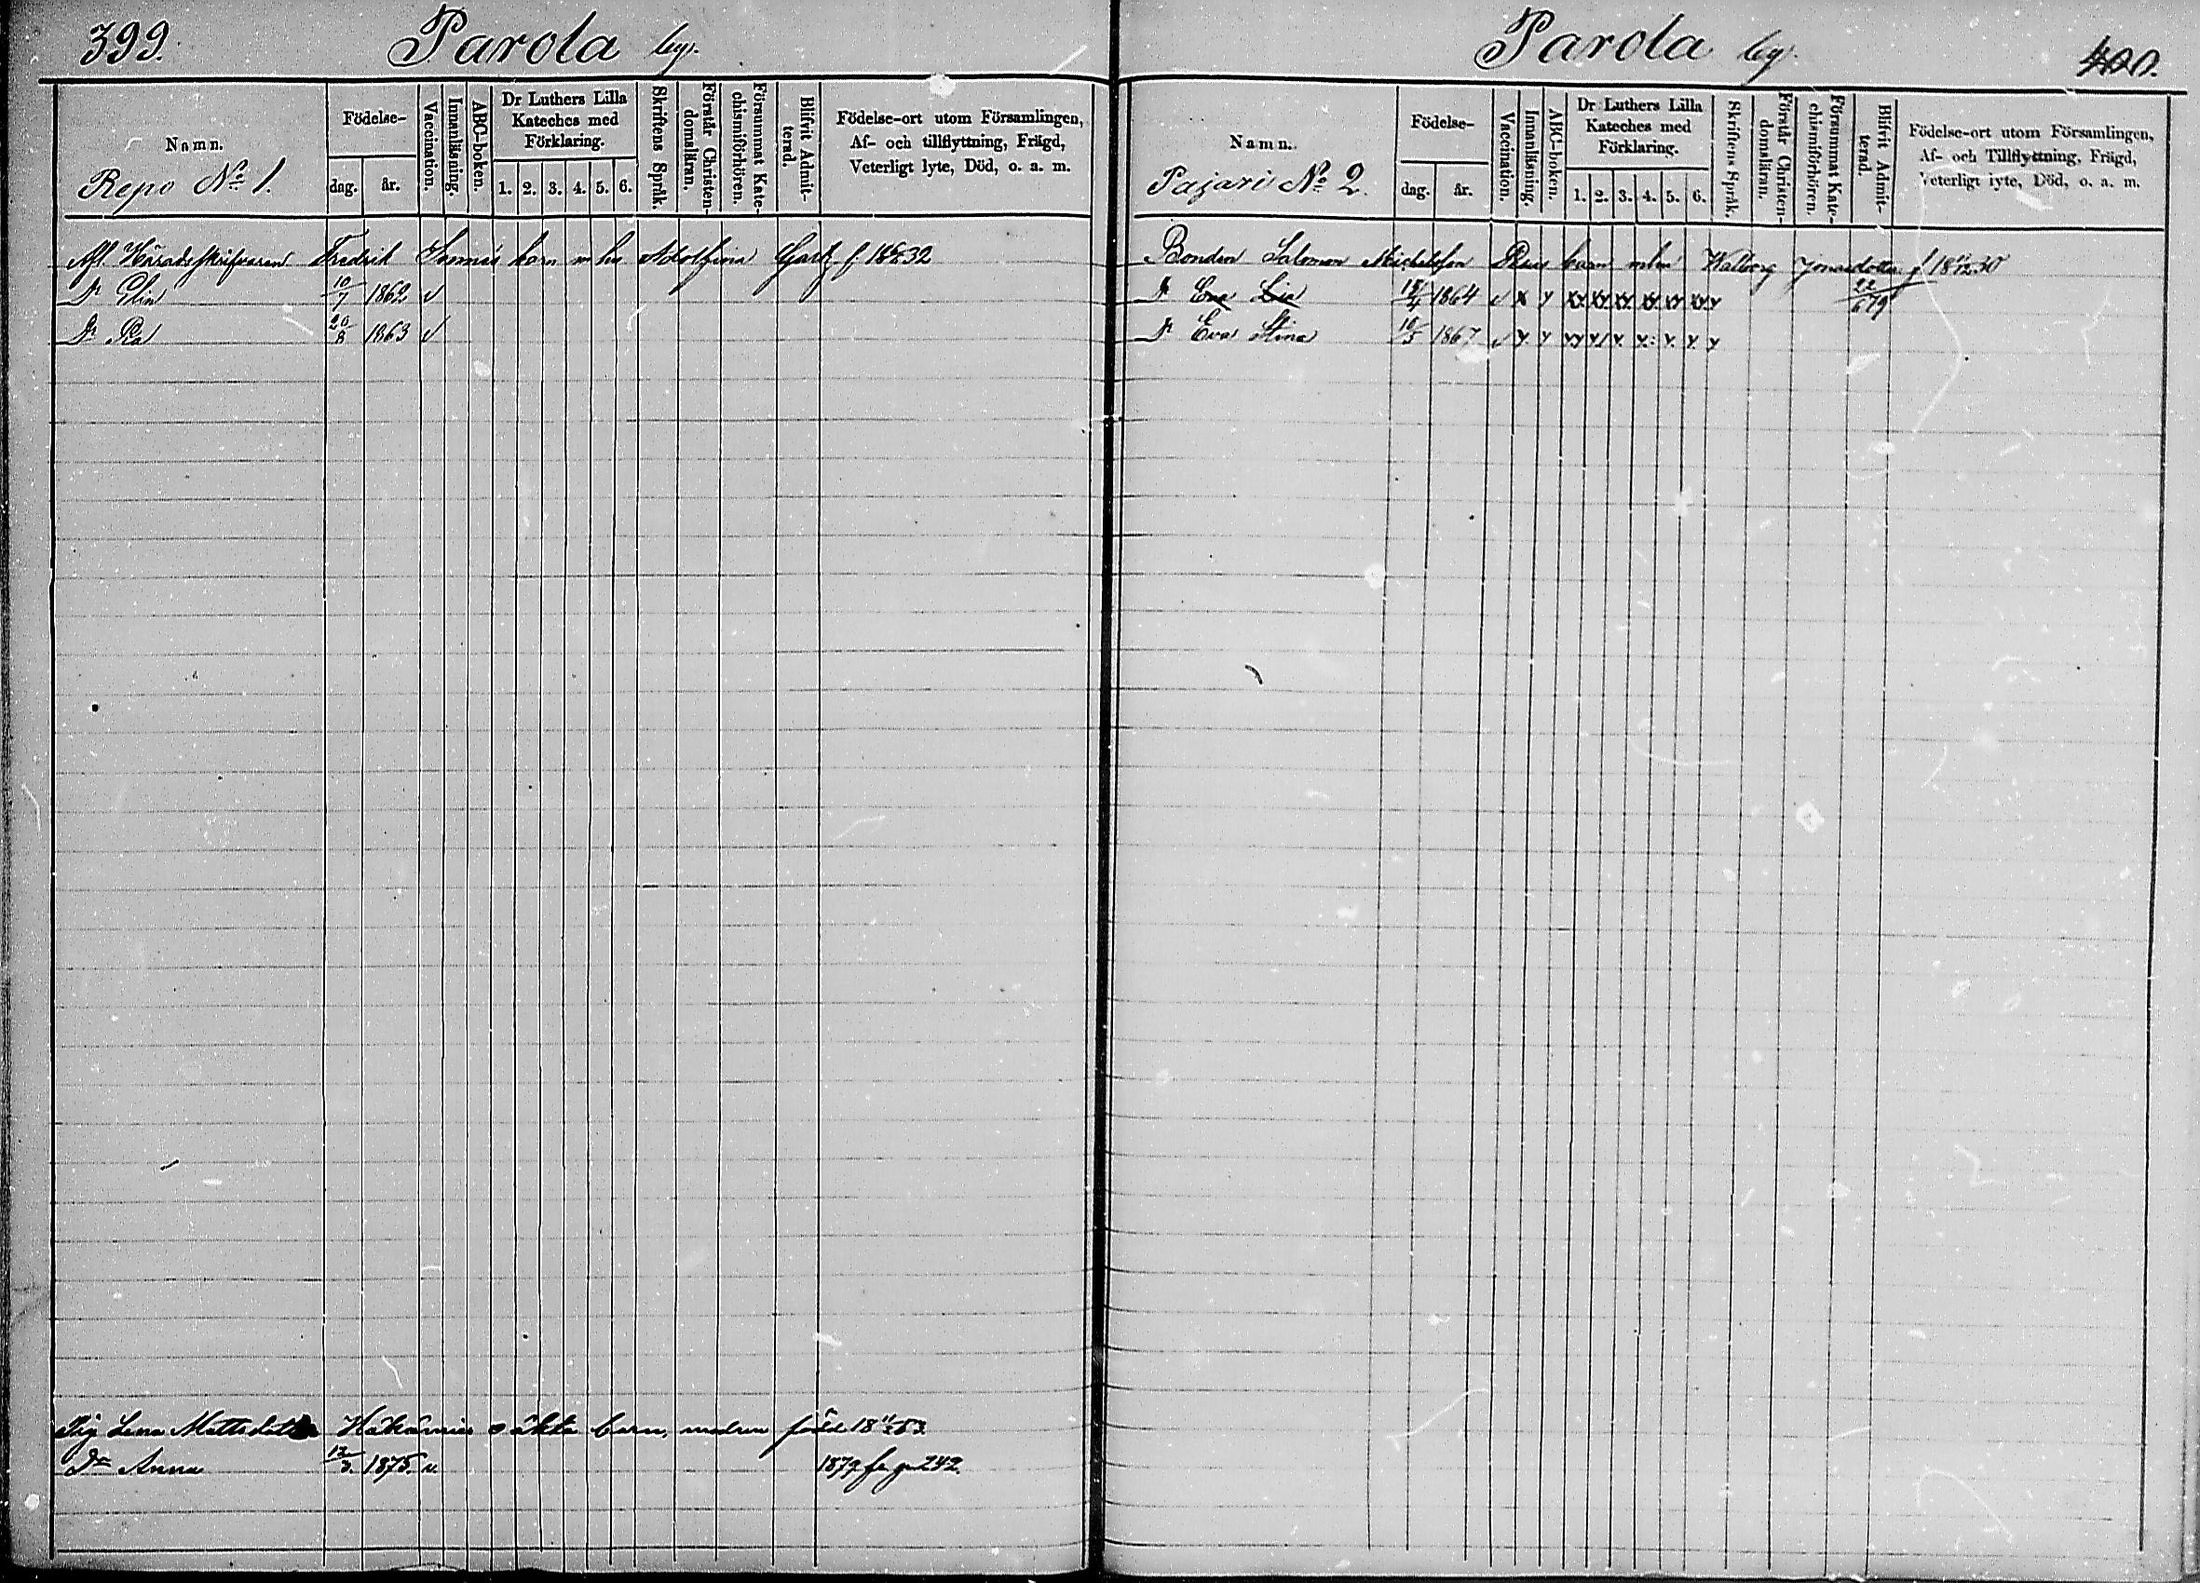 399.
Parola by.
Namn.
Repo No 1.
Födelse-
dag.
år.
Vaccination.
Innanläsning.
ABC-boken.
Dr Luthers Lilla
Kateches med
Förklaring.
1. 2. 3. 4. 5. 6.
Skriftens Språk.
Förstår Christen-
domsläran.
Försummat Kate-
chismiförhören.
Blifvit Admit-
terad.
Födelse-ort utom Församlingen,
Af- och tillflyttning, Frägd,
Veterligt lyte, Död, o. a. m.
Afl. Häradsskrifvaren Fredrik barn m hu Adolfina f. 18 32
Dr Elin 10/7 1862 v
Dr 20/8 1863 v
Pig Lena Mattsdotter oäkta barn, modren född 18 53
Dr Anna 12/3 1875. v. 1879 242.
Parola by.
400.
Namn.
Pajari No 2.
Födelse-
dag.
år.
Vaccination.
Innanläsning.
ABC-boken.
Dr Luthers Lilla
Kateches med
Förklaring.
1. 2. 3. 4. 5. 6.
Skriftens Språk.
Förstår Christen-
domsläran.
Försummat Kate-
chismiförhören.
Blifvit Admit-
terad.
Födelse-ort utom Församlingen,
Af- och Tillflyttning, Frägd,
Veterligt lyte, Död, o. a. m.
Bonden Salomon Michelsson barn Walborg Jonasdotter f 18 30
Dr Eva 1864 v x 22/6 79
Dr Eva Stina 10/5 1867 v